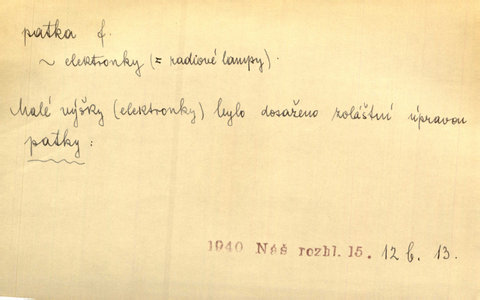 patka f.
~ elektronky (= radiové lampy).
Malé výšky (elektronky) bylo dosaženo zvláštní úpravou
patky :
1940 Náš rozhl. 15. 12 b. 13.